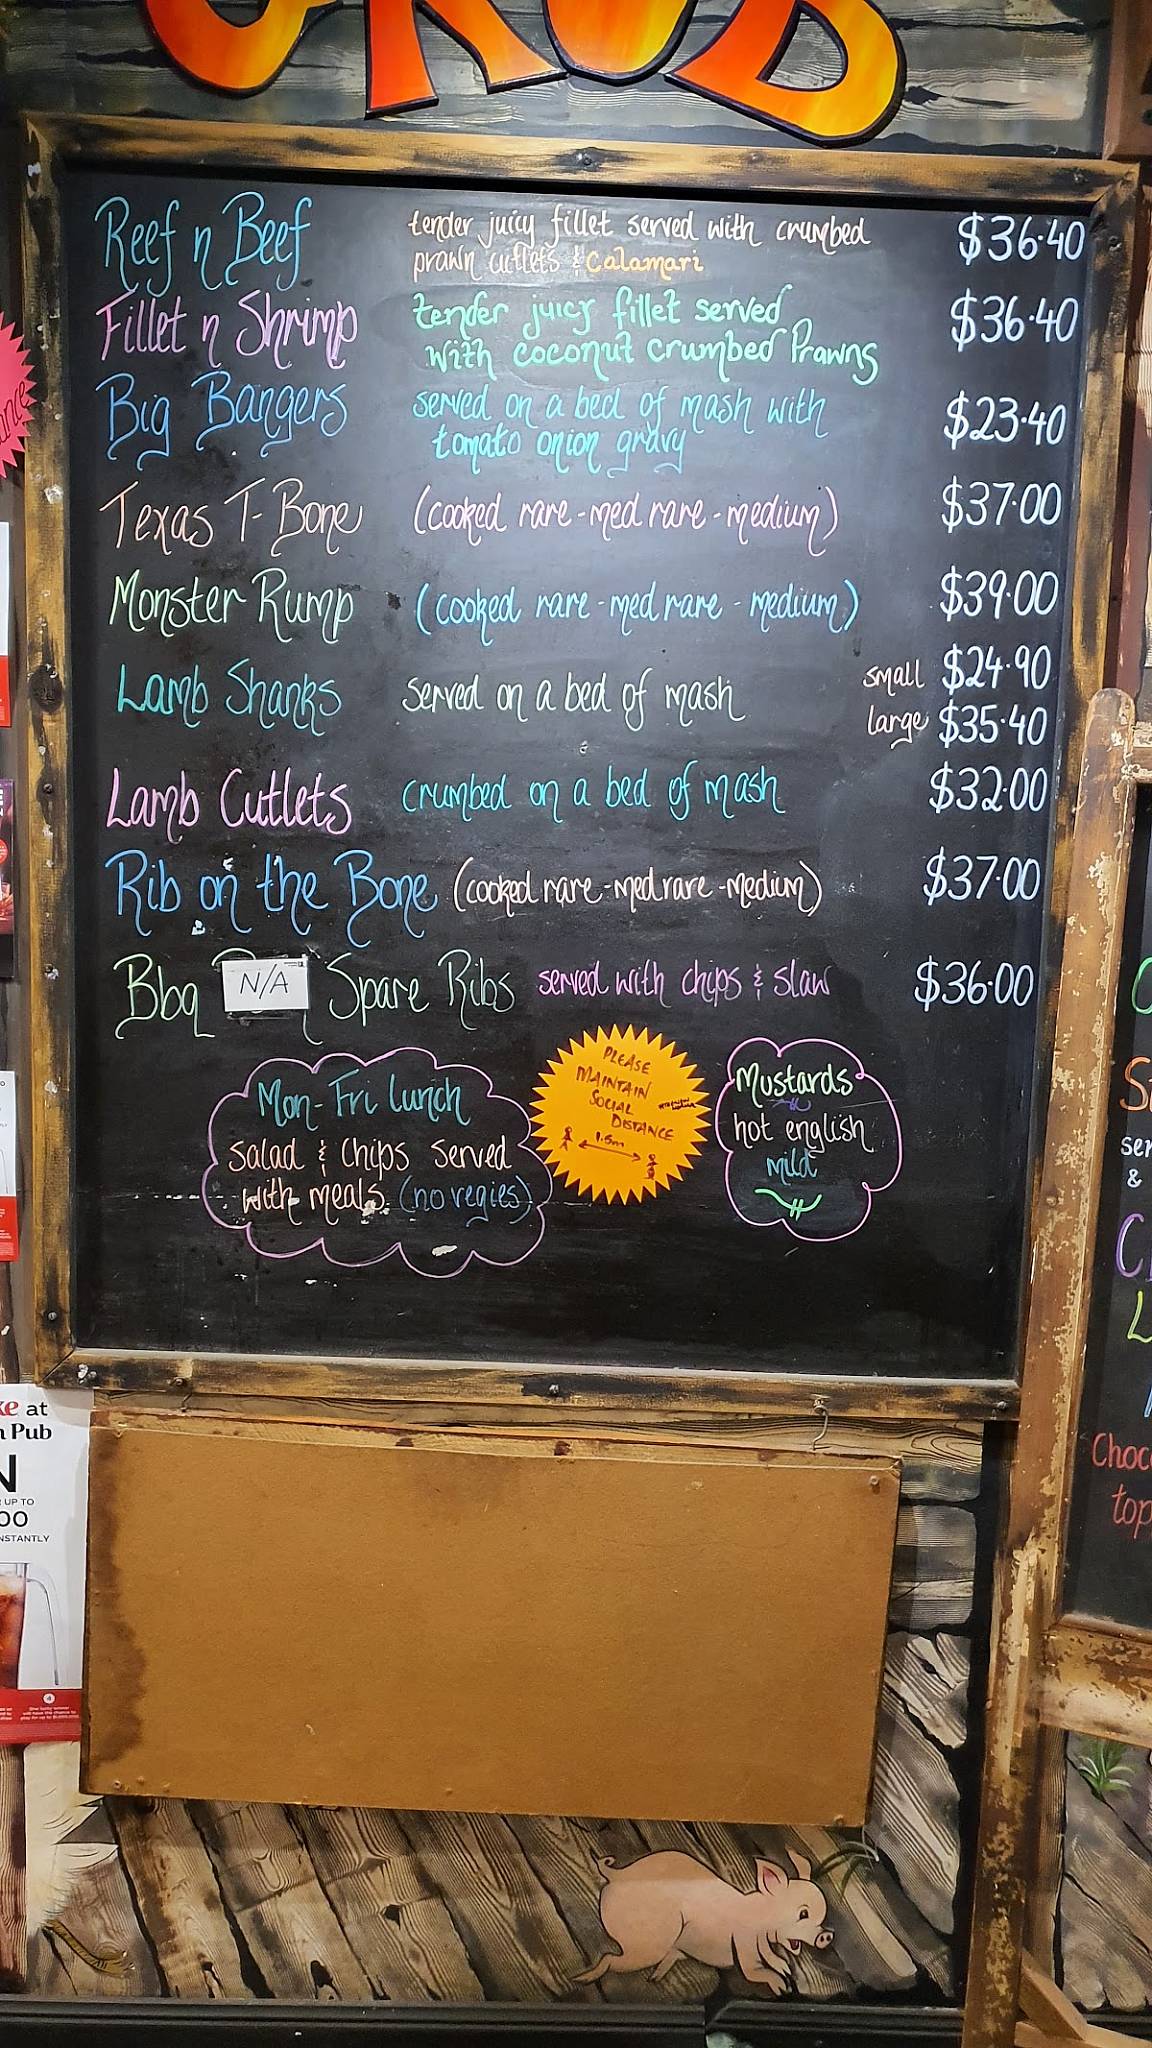 GRUB
Reef n Beef tender juicy fillet served with crumbed $36.40
prawn cutlets & calamari
Fillet n Shrimp tender juicy fillet served $36.40
with coconut crumbed Prawns
Big Bangers served on a bed of mash with $23.40
tomato onion gravy
Texas T-Bone (cooked rare - med rare - medium) $37.00
Monster Rump (cooked rare - med rare - medium) $39.00
Lamb Shanks served on a bed of mash small $24.90
large $35.40
Lamb Cutlets crumbed on a bed of mash $32.00
Rib on the Bone (cooked rare - med rare - medium) $37.00
Bbq N/A Spare Ribs served with chips & slaw $36.00
Mon-Fri lunch
salad & chips served
with meals. (no vegies)
PLEASE
MAINTAIN
SOCIAL
DISTANCE
1.5m
Mustards
hot english
mild
at
Pub
UP TO
INSTANTLY
ser
&
Choc
top